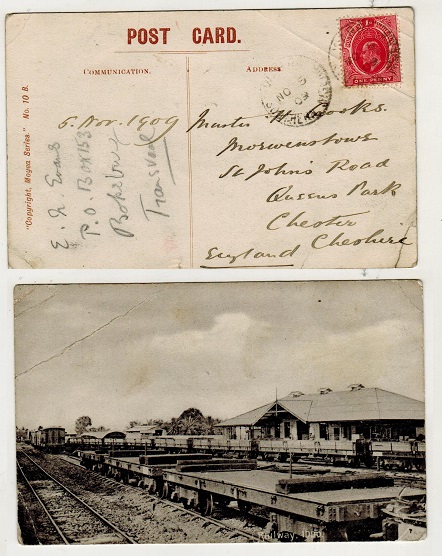 POST CARD.
COMMUNICATION.
ADDRESS.
"Copyright, Mayoa Series" No. 10 B.
5. Nov. 1909
E. H. Evans
P.O. Box 153
Boksburg
Transvaal
Master H. Cooke.
Morwenstowe
St John's Road
Queens Park
Chester
England Cheshire
ONE PENNY
NO 5
09
Railway,